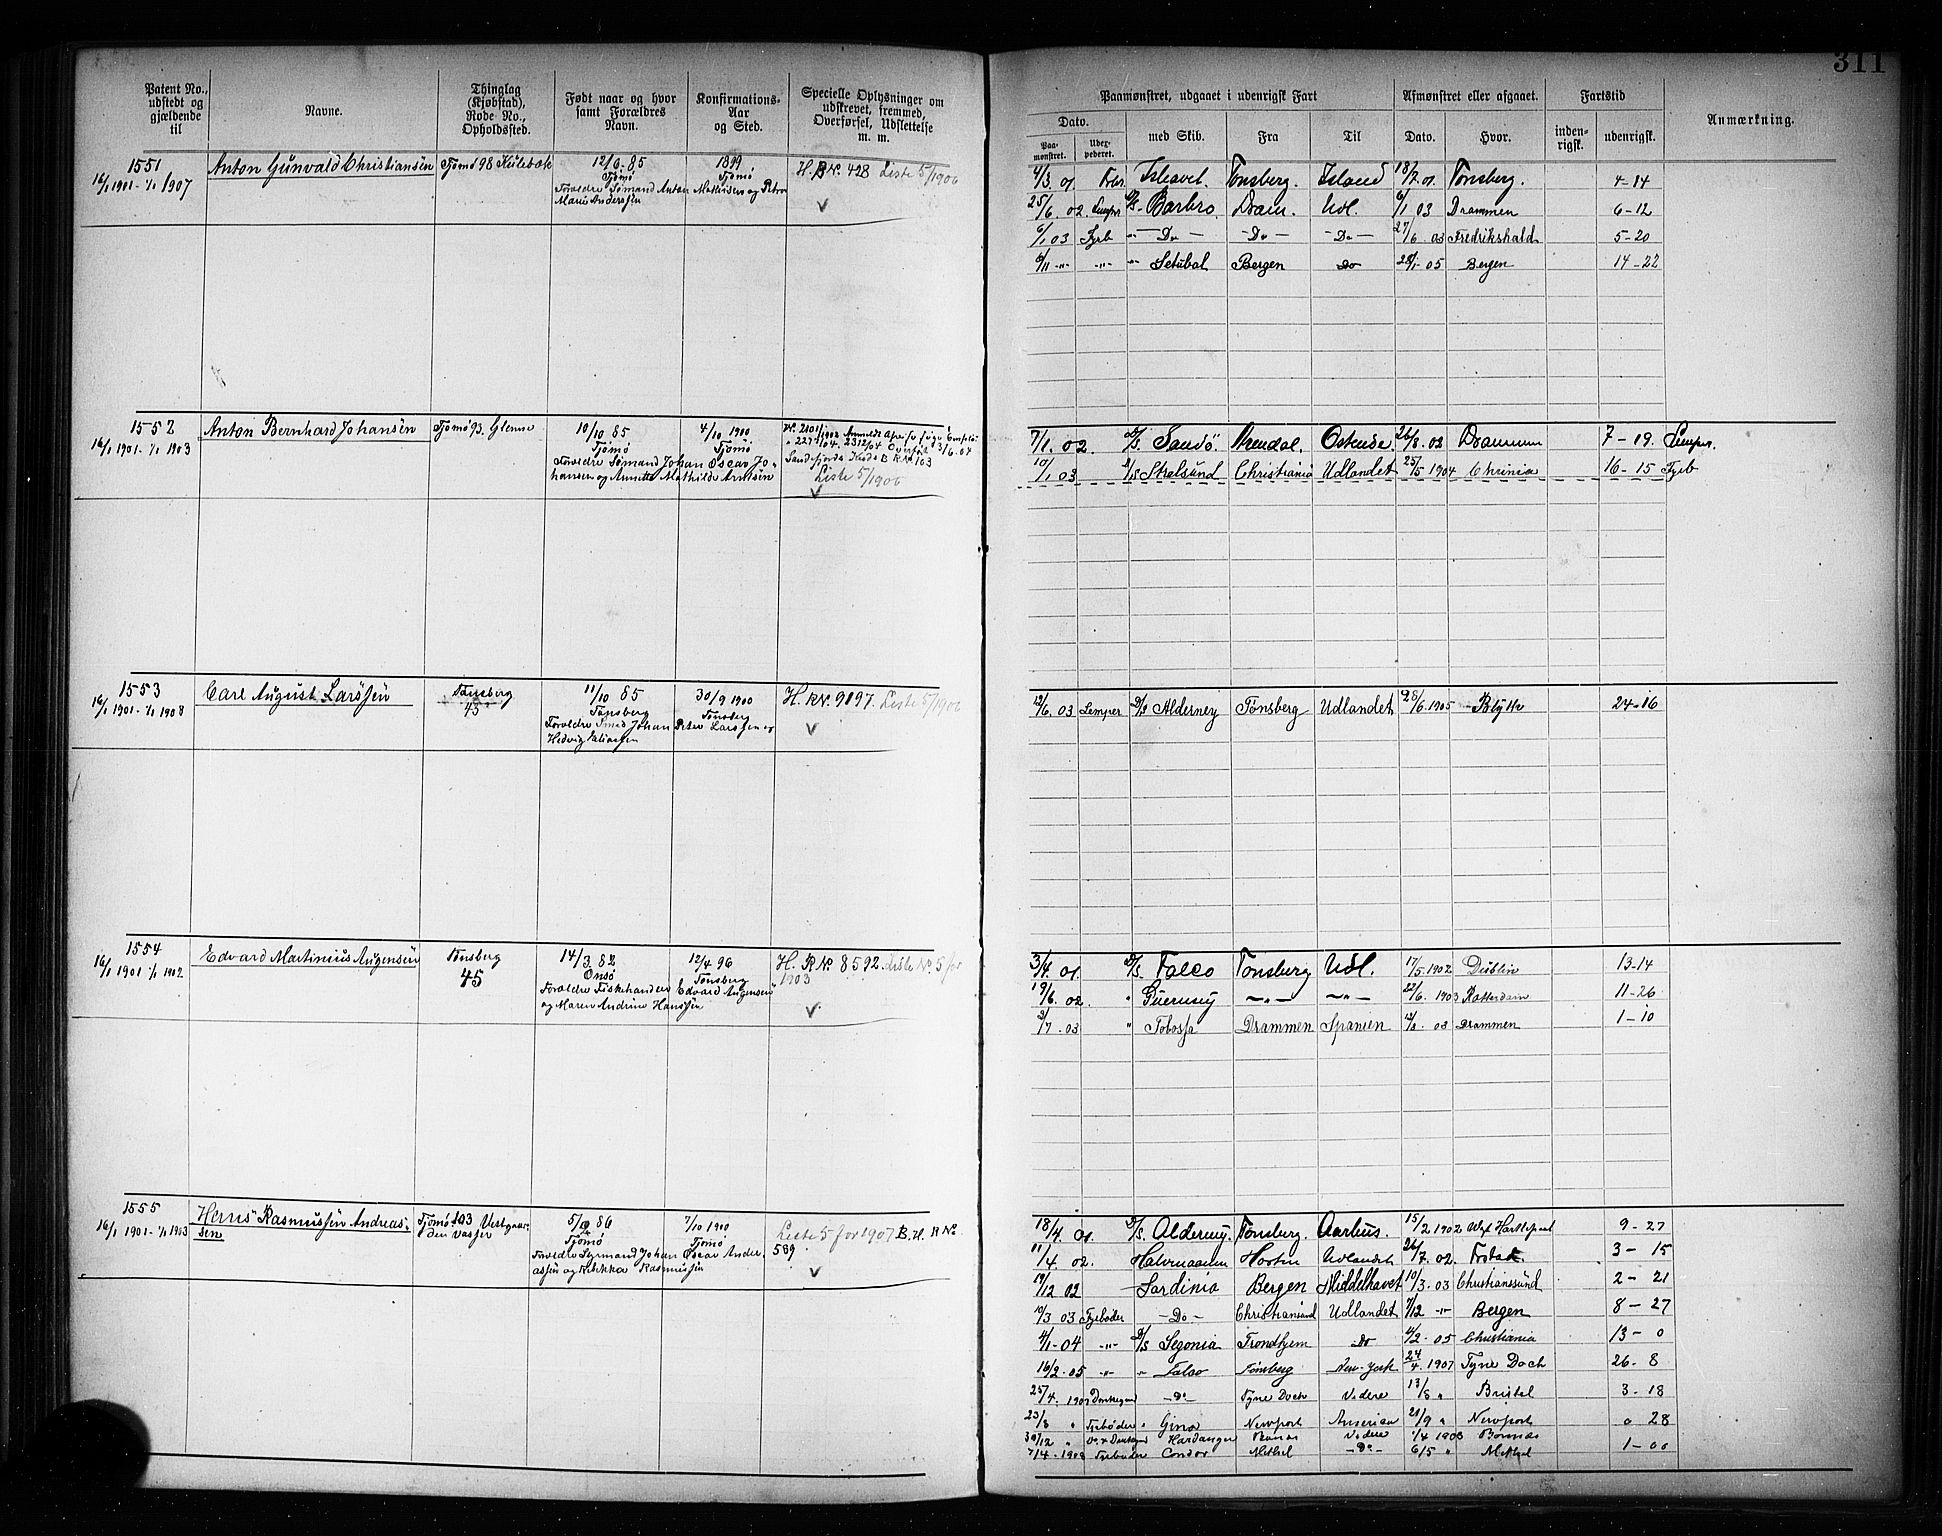 311
Patent No., udstedt og gjældende til
Navne.
Thinglag (Kjøbstad), Rode No., Opholdssted.
Født naar og hvor samt Forældres Navn.
Konfirmations-Aar og Sted.
Specielle Oplysninger om udskrevet, fremmed, Overførsel, Udslettelse m. m.
Paamønstret, udgaaet i udenrigsk Fart
Afmønstret eller afgaaet.
Fartstid
Anmærkning.
Dato.
Paa-mønstret.
Udex-pederet.
med Skib.
Fra
Til
Dato.
Hvor.
inden-rigsk.
udenrigsk.
1551
16/1 1901 - 1/1 1907
Anton Gunvald Christiansen
Tjømø 98
12/6 - 85
Tjømø
Forældre Sømand Anton Mathisen og Petra
Marie Anderssen
1899
Tjømø
H. R No. 428 Liste 5/1906
4/3. 01 Ishavet. Tønsberg. Island 18/7. 01. Tønsberg. 4-14
25/6. 02. Lemper D/S. Barbro. Dram. Udl. 6/1 03 Drammen 6-12
6/1 03 Fyrb -"- Do - - Do - - Do - 27/6. 03 Fredrikshald 5-20
-"- -"- Setubal Bergen Do 28/1 - 05 Bergen 14-22
1552
16/1 1901 - 1/1 1903
Anton Bernhard Johansen
Tjømø 93. Glenne
10/10 85
Tjømø
Forældre Sømand Johan Oscar Johansen og Annette Mathilde Arntsen
4/10 1900
Tjømø
Liste 5/1906
7/1. 02. D/S Sandø Arendal. Ostende. 26/8. 02 Drammen 7-19. Lemper.
10/1 03 D/S Stralsund Christiania Udlandet 25/5 1904 Chrinia 16-15 Fyrb
1553
16/1 1901 - 1/1 1908
Carl August Larssen
Tønsberg
45
11/10 85
Tønsberg
Forældre Smed Johan Peter Larssen og
Hedvig Eliassen
30/9 1900
Tønsberg
H. R No. 9097. Liste 5/1906
12/6. 03 Lemper D/S Alderney Tønsberg Udlandet 28/6. 1905 Blyth 24-16
1554
16/1 1901 1/1 1902
Edvard Martinius Augensen
Tønsberg
45
14/3 82
Onsø
Forældre Fiskehandler Edvard Augensen
og Maren Andrine Hanssen
12/4 96
Tønsberg
H. R No. 8592. Liste No. 5 for 1903
3/4. 01 D/S. Falco Tønsberg Udl. 17/5. 1902 Dublin 13-14
19/6. 02 " Guernsey -"- -"- 22/6. 1903 Rotterdam 11-26
2/7. 03 " Drammen Spanien 12/8. 03 Drammen 1-10
1555
16/1 1901 - 1/1 1903
Hans Rasmussen Andreassen
Tjømø 103
86
Tjømø
Forældre Styrmand Johan Oscar Andreassen og Rebekka Rasmussen
7/10 1900
Tjømø
Liste 5 for 1907 B. H. R No. 589
18/4. 01. D/S. Alderney. Tønsberg. Aarhus. 15/2. 1902 West Hartlepool 9-27
11/4. 02. Horten Udlandet 26/7. 02. 3-15
19/12 02 Sardinia Bergen Middelhavet 10/3. 03 Christianssund 2-21
10/3 03 Fyrbøder - Do - Christianssund Udlandet 7/12 -"- Bergen 8-27
4/1 - 04 -"- D/S Segovia Trondhjem Do 4/2. 05 Christiania 13-0
16/2. 05 -"- -"- Falco Tønsberg New-York 24/4. 1907 Tyne Dock 26-8
25/4. 1907 Donkeym - Do - Tyne Dock Videre 13/8 " Bristol 3-18
23/8 " Fyrbøder " Gina Newport Amerika 21/9 " Newport 0 28
30/12 " Hardanger Videre 1/4 1908
7/4 - 1908 Fyrbøder Condor Methil - Do - 6/5 " Methil 1-00